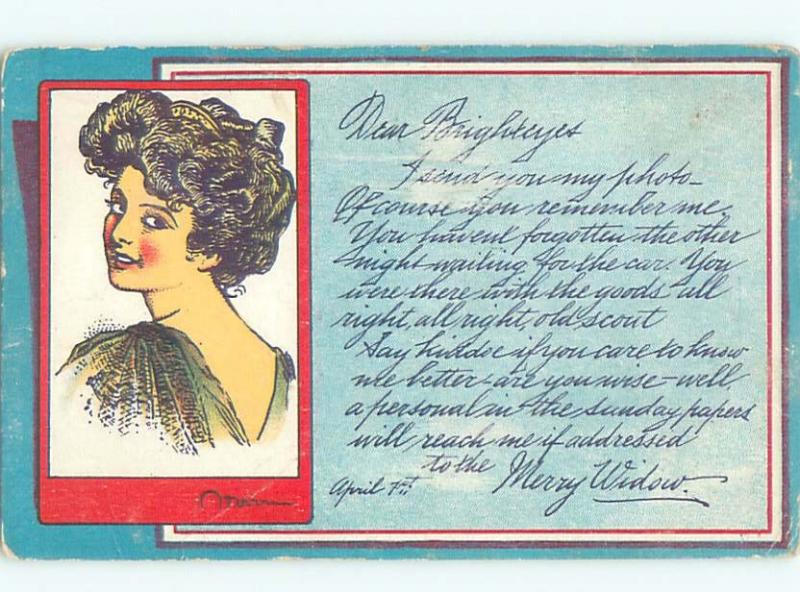 Dear Brighteyes
I send you my photo-
Of course you remember me,
You havent forgotten the other
night waiting for the car. You
were there with the goods all
right, all right, old scout
Say kiddo if you care to know
me better - are you wise - well
a personal in the Sunday papers
will reach me if addressed
to the Merry Widow.
April 1st